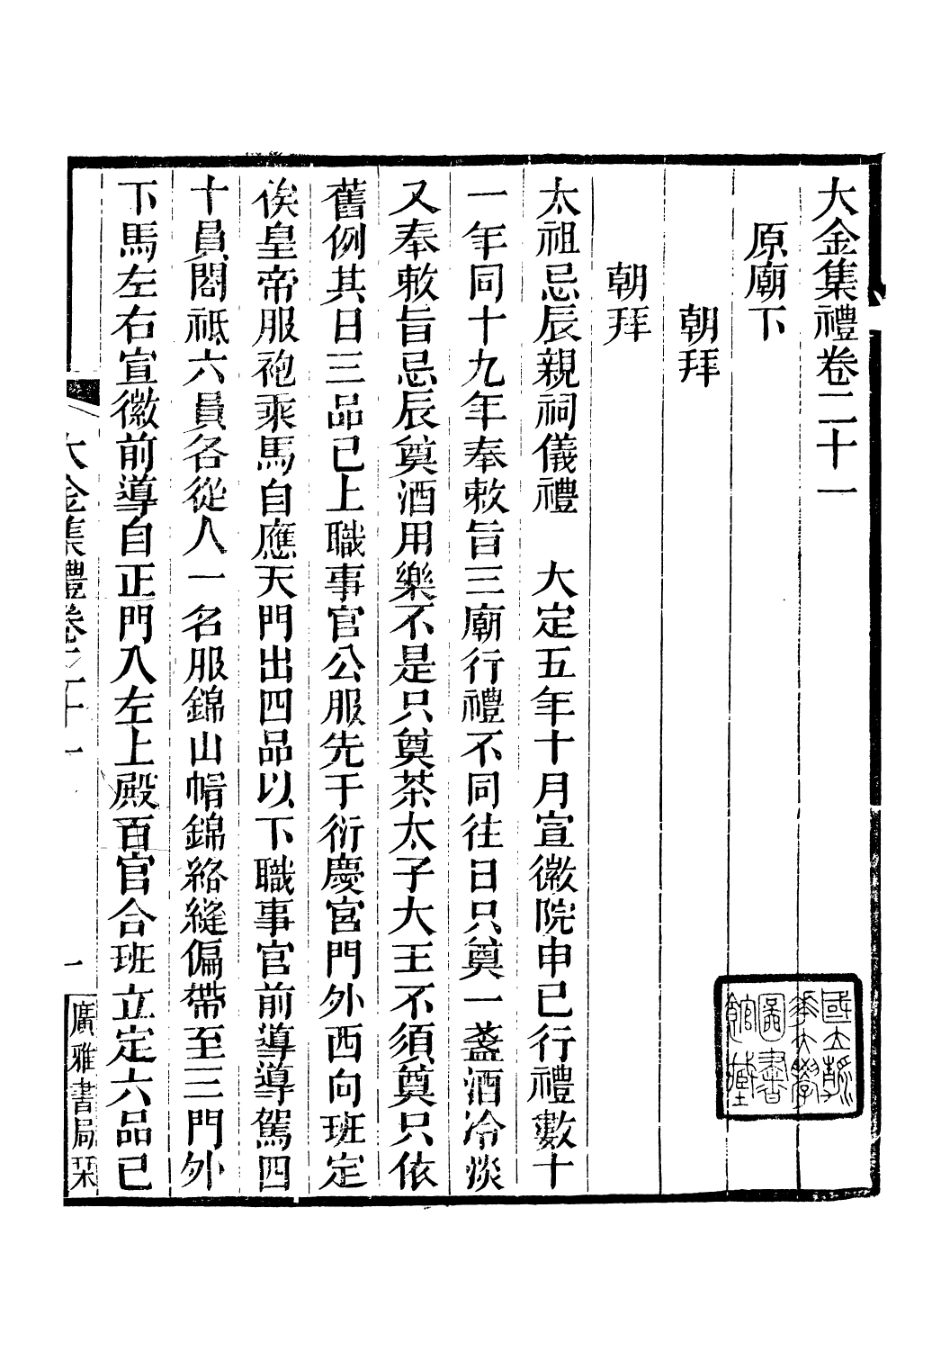 大金集禮卷二十一
原廟下
朝拜
朝拜
太祖忌辰親祠儀禮　大定五年十月宣徽院申已行禮數十
一年同十九年奉敕旨三廟行禮不同往日只奠一盞酒冷淡
又奉敕旨忌辰奠酒用樂不是只奠茶太子大王不須奠只依
舊例其日三品已上職事官公服先于衍慶宮門外西向班定
俟皇帝服袍乘馬自應天門出四品以下職事官前導導駕四
十員閤祗六員各從人一名服錦山帽錦絡縫偏帶至三門外
下馬左右宣徽前導自正門入左上殿百官合班立定六品已
大金集禮卷二十一
一
廣雅書局栞
國立清
華大學
圖書
館藏